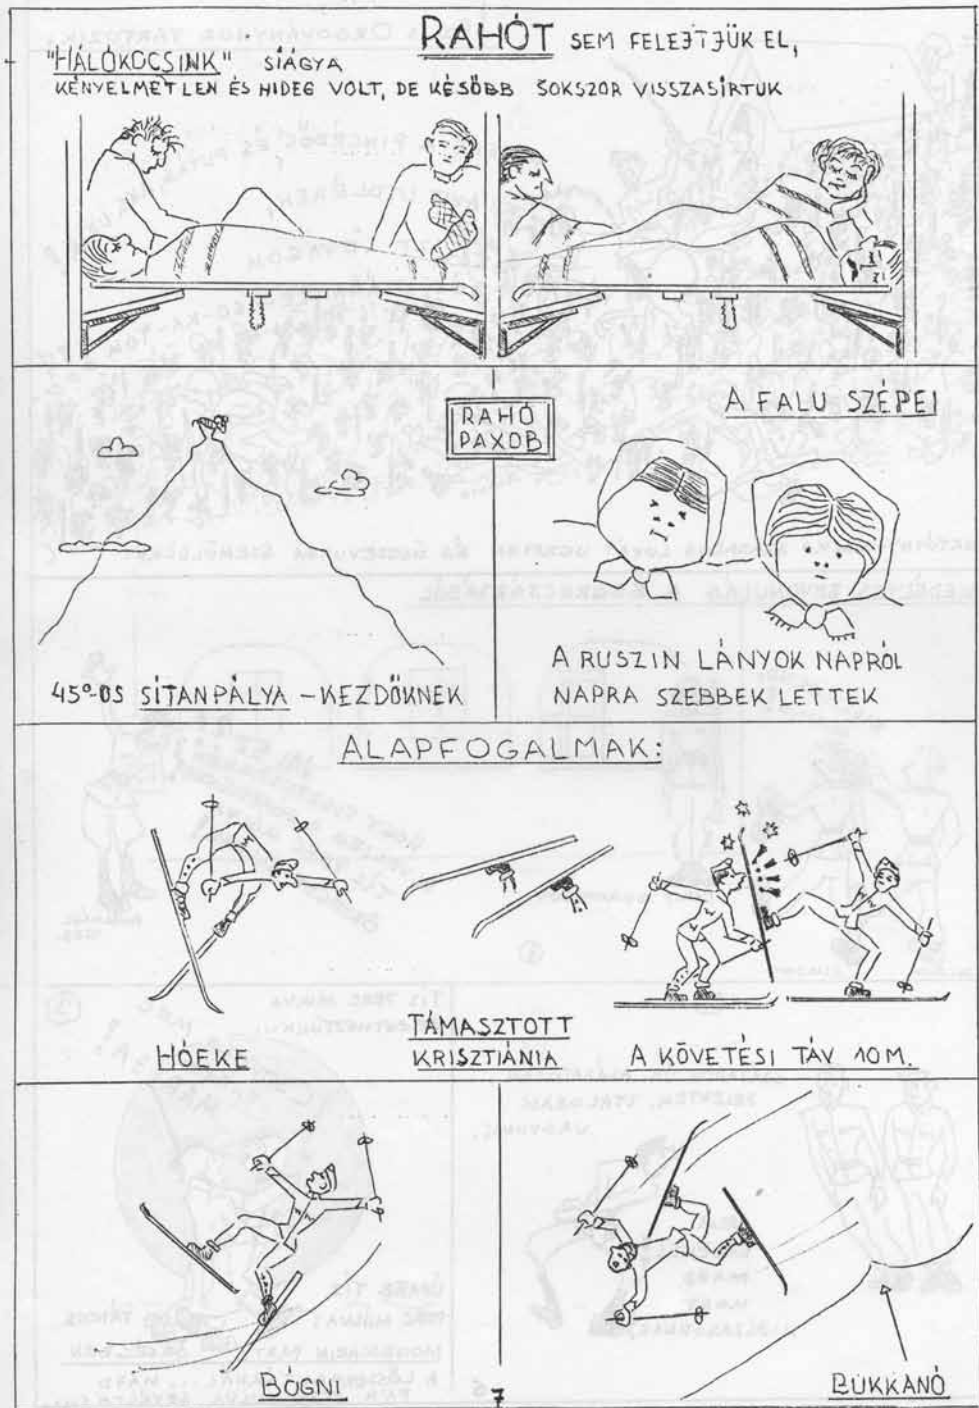 RAHÓT SEM FELEJTJÜK EL,
"HÁLÓKOCSINK" SIÁGYA
KÉNYELMETLEN ÉS HIDEG VOLT, DE KÉSŐBB SOKSZOR VISSZASÍRTUK
RAHÓ
РАХОВ
45°-OS SÍTANPÁLYA – KEZDŐKNEK
A FALU SZÉPEI
A RUSZIN LÁNYOK NAPRÓL
NAPRA SZEBBEK LETTEK
ALAPFOGALMAK:
HÓEKE
TÁMASZTOTT
KRISZTIÁNIA
A KÖVETÉSI TÁV 10 M.
BÖGNI
BUKKANÓ
7